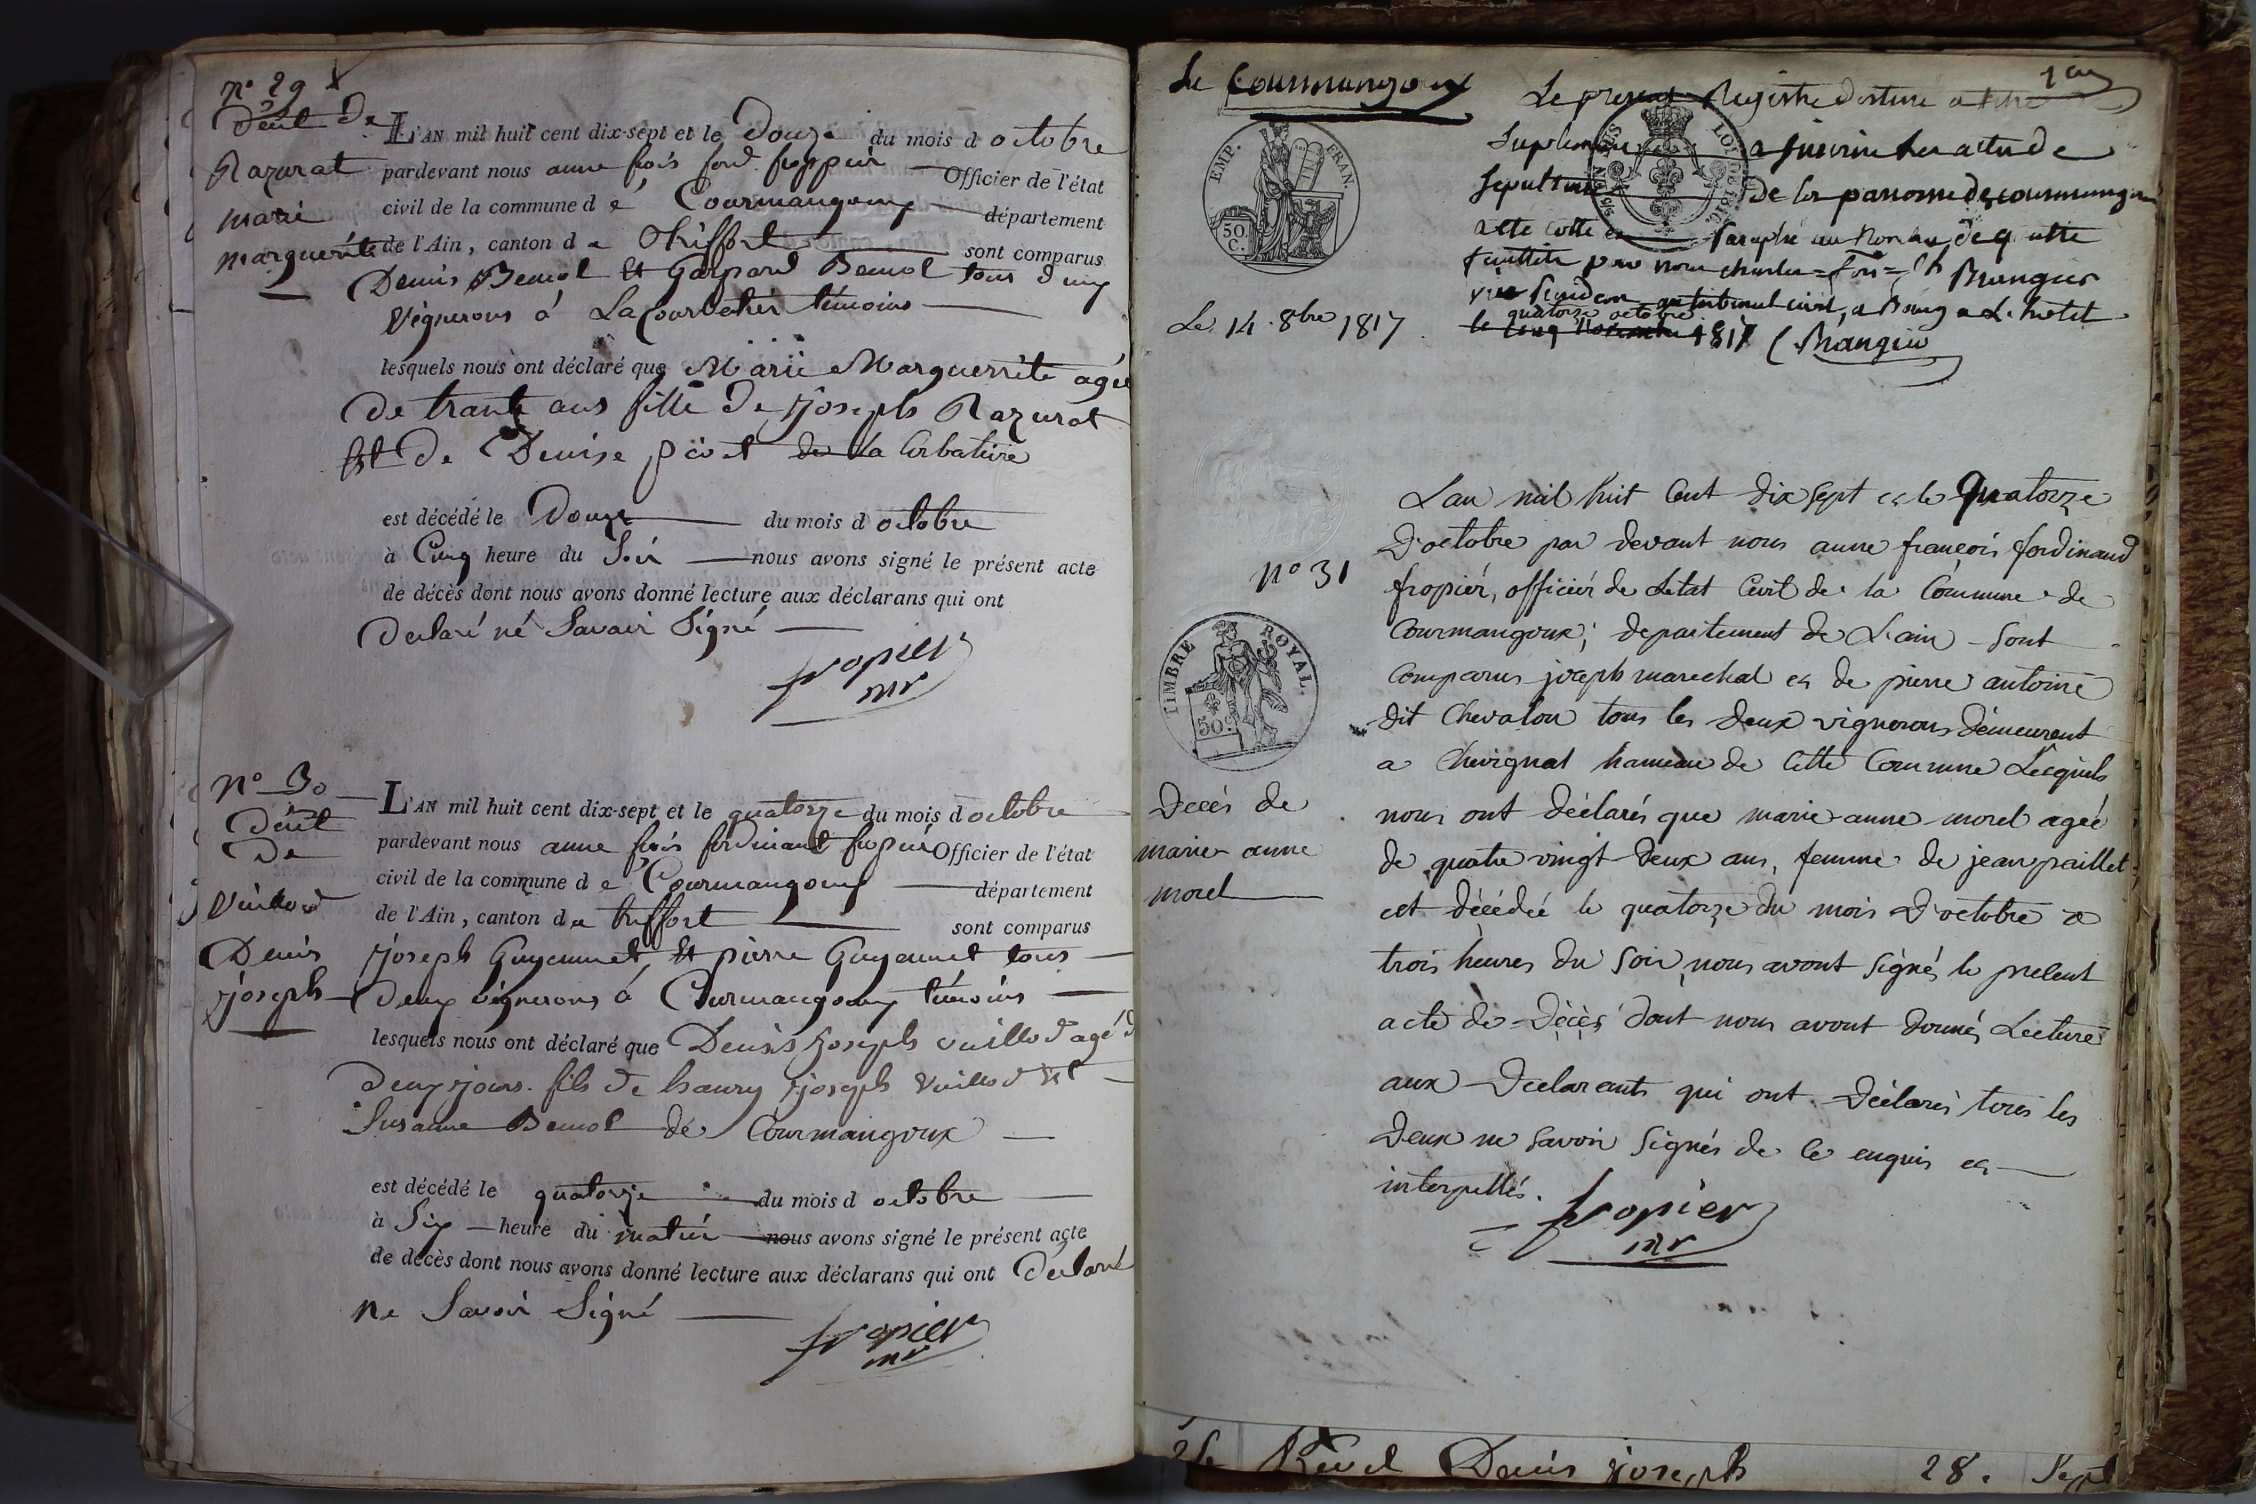 n° 29
Décèt de
Razurat
marie
marguerite
L'AN mil huit cent dix-sept et le Douze du mois d octobre
pardevant nous anne frois ferd. froppier Officier de l'état
civil de la commune d e Courmangoux département
de l'Ain, canton d e Triffort sont comparus
Denis Bemol Et Gaspard Bemol tous d
vignerons à La Courbatier témoins
lesquels nous ont déclaré que Marie Marguerite agée
de trante ans fille de Joseph Razurat
Et de Denise piôt de la Corbatiere
est décédé le Douze du mois d octobre
à Cinq heure du Soir nous avons signé le présent acte
de décès dont nous avons donné lecture aux déclarans qui ont
declaré né Savoir Signé
fropier
mr
n° 30
Décèt
de
Vuillod
Denis
joseph
L'AN mil huit cent dix-sept et le quatorze du mois d octobre
pardevant nous anne frois ferdinant fropier Officier de l'état
civil de la commune d e Courmangoux département
de l'Ain, canton d e triffort sont comparus
joseph Guyennet Et pierre Guyennet tous
deux vignerons à Courmangoux témoins
lesquels nous ont déclaré que Denis Joseph vuillod agé d
deux jours fils de haury joseph Vuillod Et
Susanne Bemol de Courmangoux
est décédé le quatorze du mois d octobre
à Six heure du matin nous avons signé le présent acte
de décès dont nous avons donné lecture aux déclarans qui ont declaré
ne Savoir Signé
fropier
mr
de Courmangoux
1er
Le present Registre
EMP. FRAN.
50 C.
LOI DE 1816.
Sepulture de la paroisse de courmangoux
feuillets par nous charles = fois = Brangier
au tribunal civil, a Bourg
quatorze octobre
1817 Brangier
Le 14. 8bre 1817
n° 31
TIMBRE ROYAL.
50 C.
Decès de
marie anne
morel
Lan mil huit Cent dix sept et le Quatorze
D'octobre par devant nous anne françois ferdinand
fropier, officier de Letat Civil de la Commune de
Courmangoux; departement de L'ain sont
Comparus joseph marechal et de pierre antoine
dit Chevalon tous les deux vignerons demeurent
a Chevignat hameau de Cette Commune Lesquels
nous ont déclarés que marie anne morel ageé
de quatre vingt deux ans, femme de jean paillet
est décédée le quatorze du mois D'octobre a
trois heures du soir nous avont signés le present
acte de Décès dont nous avont donnés Lecture
aux Declarants qui ont Déclarés tous les
Deux ne Savoir Signés de Ce enquis et
interpellés.
fropier
mr
Revel Denis joseph 28. Sept